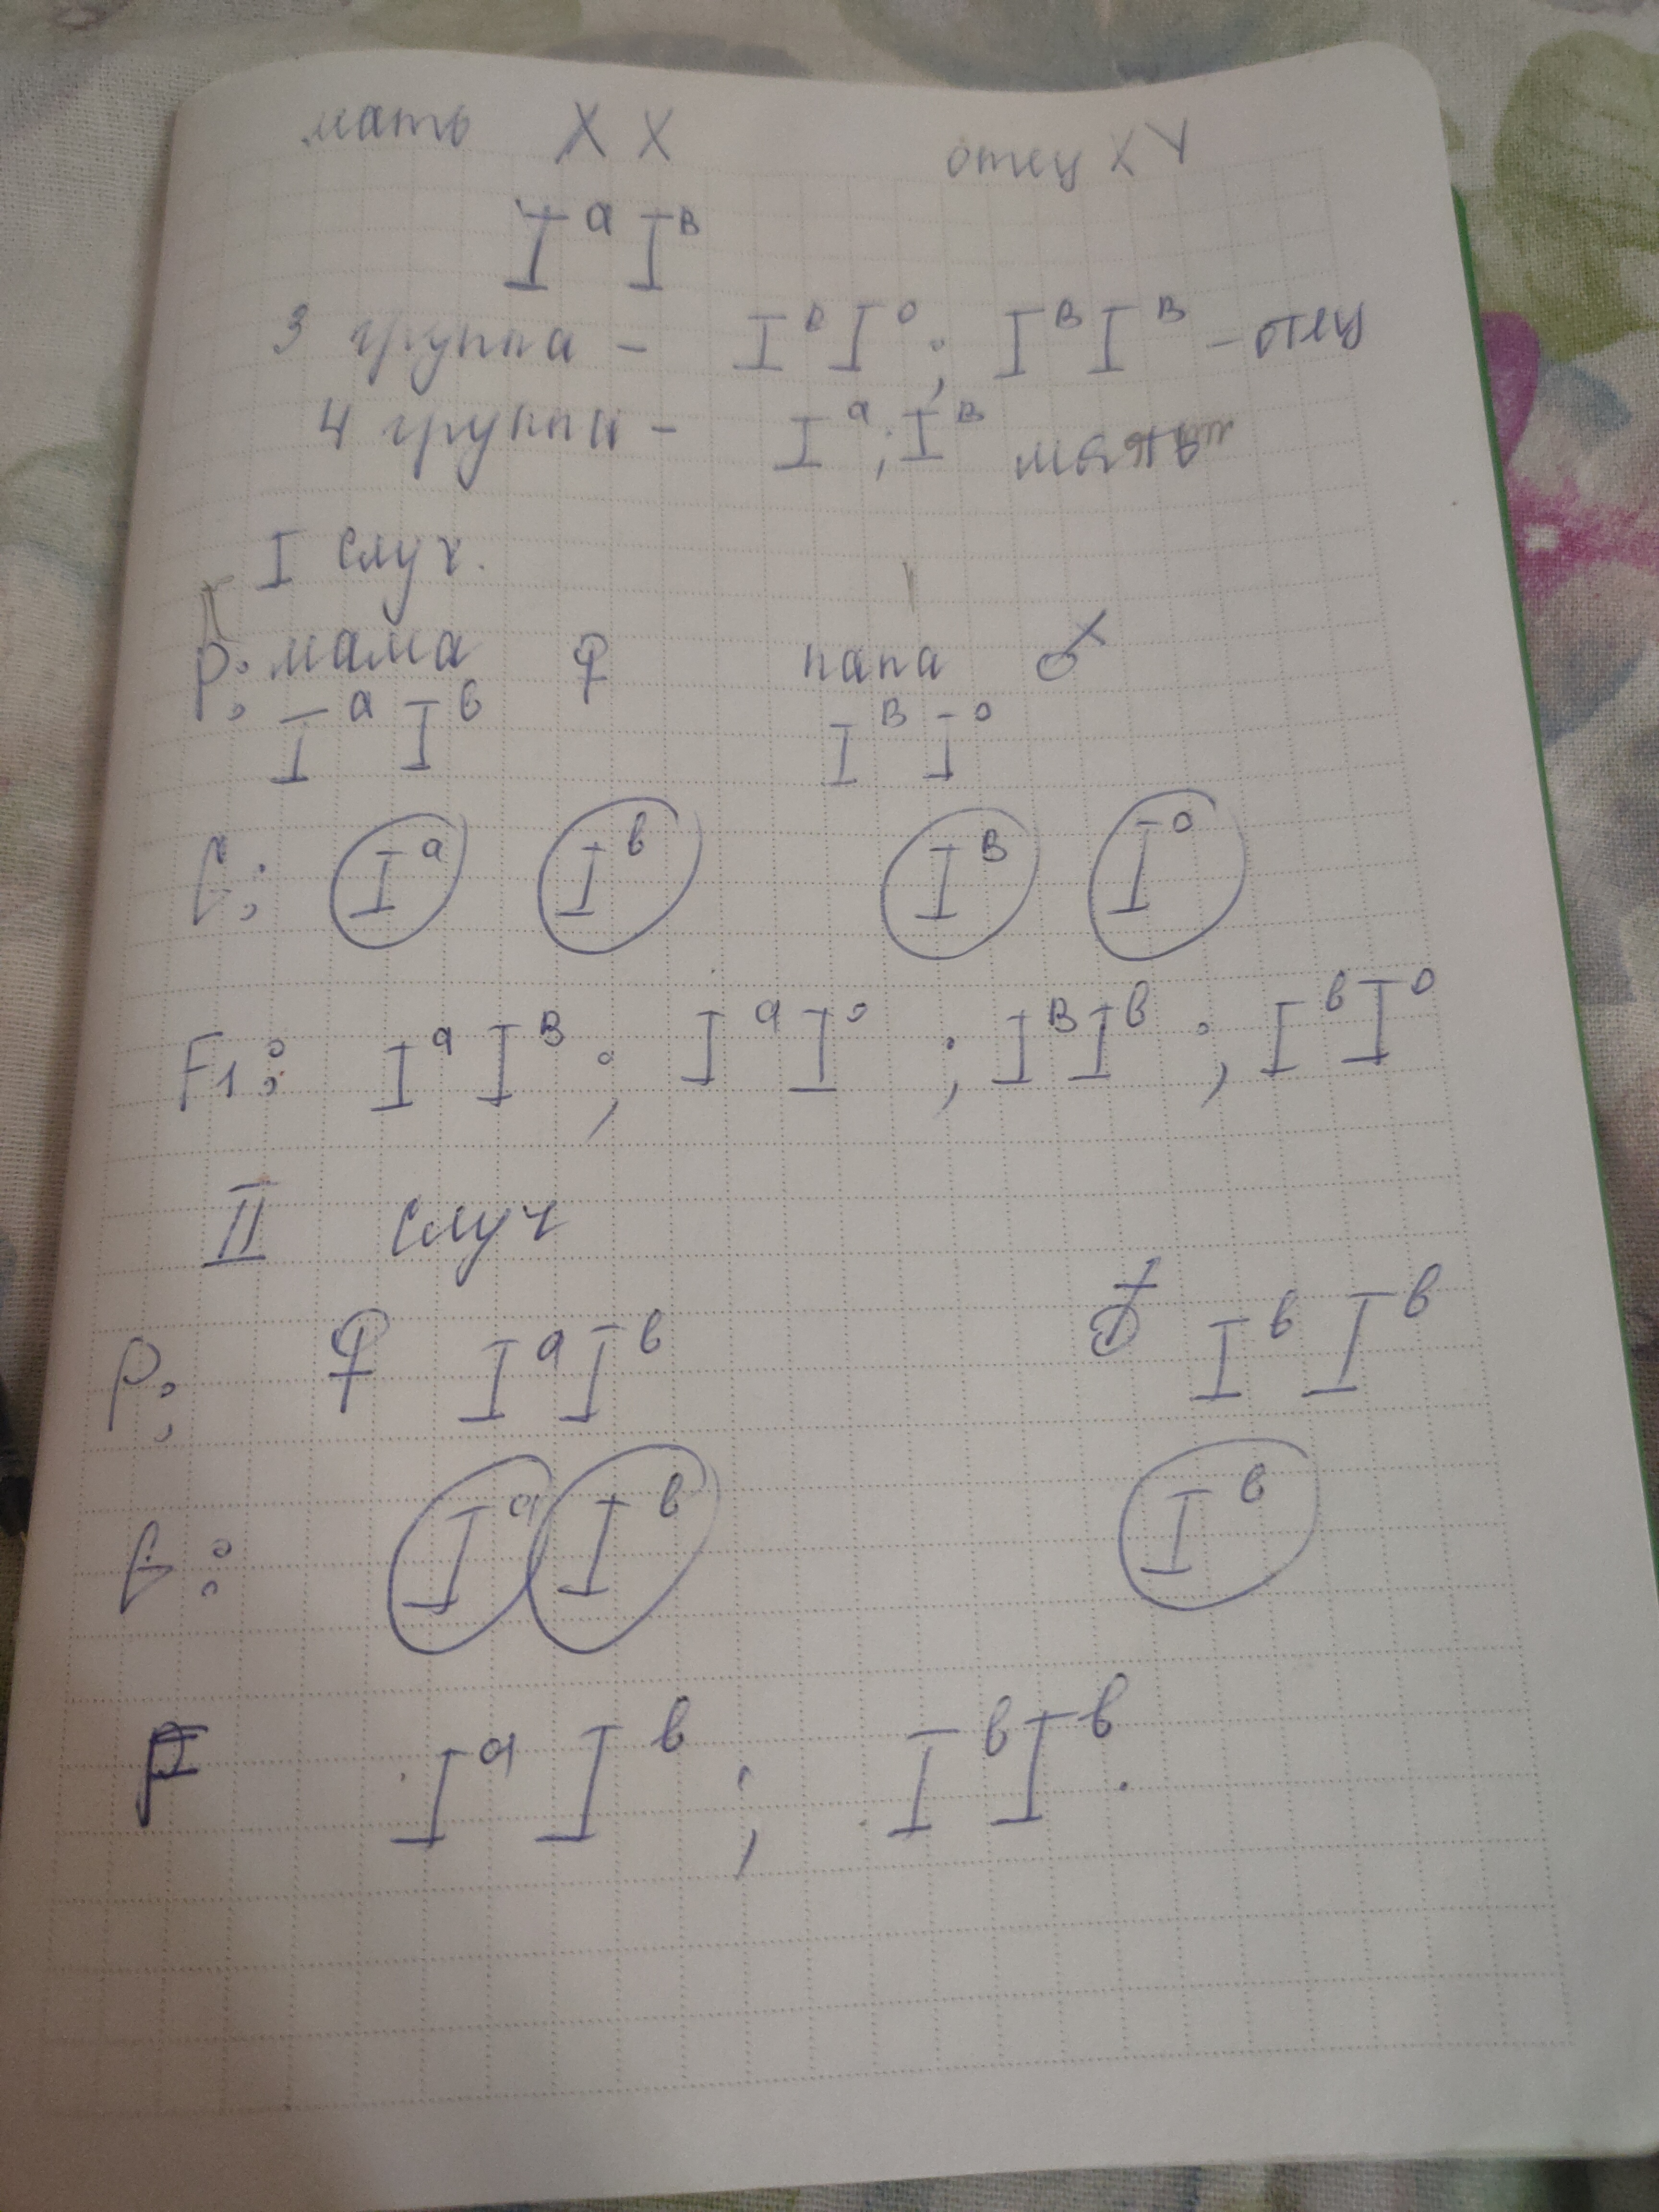 мать XX отец XY
Iᵃ Iᴮ
3 группа - Iᴮ I⁰; IᴮIᴮ - отец
4 группы - Iᵃ; Iᴮ
I случ.
P: мама ♀ папа ♂
Iᵃ Iᵇ Iᴮ I⁰
G: Iᵃ Iᵇ Iᴮ I⁰
F1: IᵃIᴮ; IᵃI⁰; IᴮIᵇ; IᵇI⁰
II случ
P: ♀ IᵃIᵇ ♂ IᵇIᵇ
G: Iᵃ Iᵇ Iᵇ
F Iᵃ Iᵇ; IᵇIᵇ.